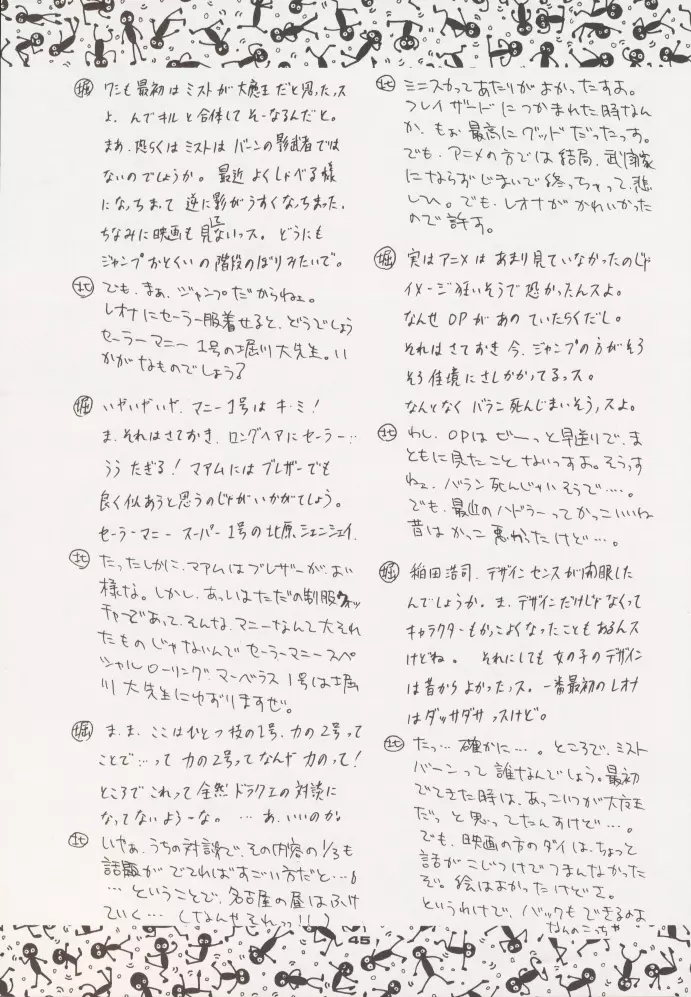 ㊗北 ミニスカってあたりがよかったすよ。
フレイザードにつかまれた時なん
か、もぉ最高にグッドだったっす。
でも、アニメの方では結局、武闘家
にならずじまいで終っちゃって、悲
しひ。でも、レオナがかわいかった
ので許す。
堀 実はアニメはあまり見ていなかったのじゃ
イメージ狂いそうで恐かったんスよ。
なんせOPがあのていたらくだし。
それはさておき今、ジャンプの方がそろ
そろ佳境にさしかかってるっス。
なんとなくバラン死んじまいそうっスよ。
北 わし、OPはビーッと早送りで、ま
ともに見たことないっすよ。そうっす
ねェ、バラン死んじゃいそうで…。
でも、最近のハドラーってかっこいいね
昔はかっこ悪かったけど…。
堀 稲田浩司、デザインセンスが開眼した
んでしょうか。ま、デザインだけじゃなくって
キャラクターもかっこよくなったこともあるんス
けどね。それにしても女の子のデザイン
は昔からよかったっス。一番最初のレオナ
はダッサダサっスけど。
北 たっ…確かに…。ところで、ミスト
バーンって誰なんでしょう。最初
でてきた時は、あっこいつが大魔王
だっと思ってたんすけど…。
でも、映画の方のダイは、ちょっと
話がこじつけでつまんなかった
ぞ。絵はよかったけどさ。
というわけで、バックもできるのよ
なんのこっちゃ
堀 ワシも最初はミストが大魔王だと思ったっス
よ、んでキルと合体してそーなるんだと。
まあ、恐らくはミストはバーンの影武者では
ないのでしょうか。最近よくしゃべる様
になっちまって逆に影がうすくなっちまった。
ちなみに映画も見てないっス。どうにも
ジャンプおとくいの階段のぼりみたいで。
北 でも、まぁ、ジャンプだからねェ。
レオナにセーラー服着せると、どうでしょう
セーラーマニー1号の堀川大先生。い
かがなものでしょう?
堀 いやいやいや、マニー1号はキ・ミ!
ま、それはさておき、ロングヘアにセーラー…
うう たぎる! マァムにはブレザーでも
良く似あうと思うのじゃがいかがでしょう。
セーラーマニー スーパー1号の北原シェンシェイ。
北 たったしかに、マァムはブレザーが、よい
様な。しかし、あっしはただの制服ウォッ
チャーであって、そんな、マニーなんて大それ
たものじゃないんで セーラーマニースペ
シャルローリングマーベラス1号は堀
川大先生にゆずりますぜ。
堀 ま、ま、ここはひとつ技の1号、力の2号って
ことで…って 力の2号ってなんや力のって!
ところでこれって全然ドラクエの対談に
なってないよーな。…あ、いいのか。
北 いやぁ、うちの対談で、その内容の1/3も
話題がでてればすごい方だと…。
…ということで、名古屋の昼はふけ
ていく… (なんやそれっ!!)
45